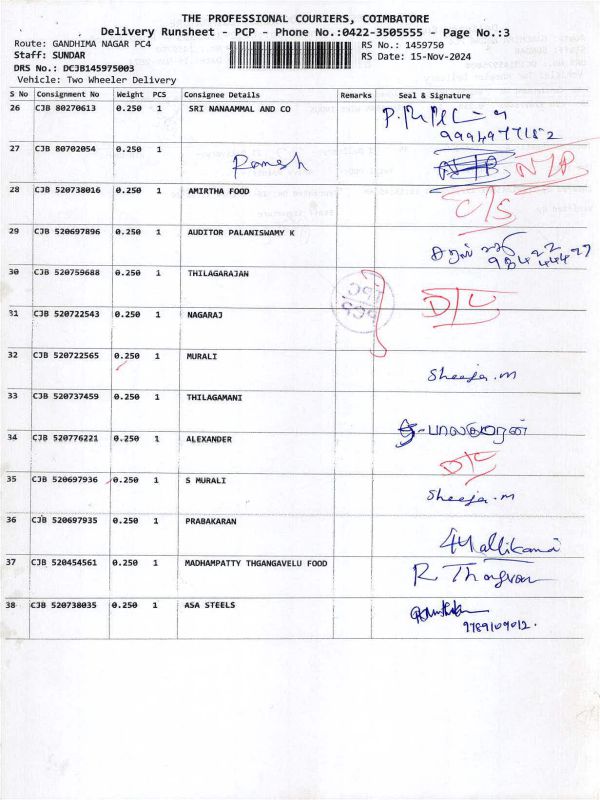 THE PROFESSIONAL COURIERS, COIMBATORE
Delivery Runsheet - PCP - Phone No.:0422-3505555 - Page No.:3
Route: GANDHIMA NAGAR PC4 RS No.: 1459750
Staff: SUNDAR RS Date: 15-Nov-2024
DRS No.: DCJB145975003
Vehicle: Two Wheeler Delivery
S No Consignment No Weight PCS Consignee Details Remarks Seal & Signature
26 CJB 80270613 0.250 1 SRI NANAAMMAL AND CO
9994977152
27 CJB 80702054 0.250 1 Ramesh N/P
28 CJB 520738016 0.250 1 AMIRTHA FOOD C/S
29 CJB 520697896 0.250 1 AUDITOR PALANISWAMY K
30 CJB 520759688 0.250 1 THILAGARAJAN
D/L
31 CJB 520722543 0.250 1 NAGARAJ
32 CJB 520722565 0.250 1 MURALI Sheeja.m
33 CJB 520737459 0.250 1 THILAGAMANI
34 CJB 520776221 0.250 1 ALEXANDER
D/L
35 CJB 520697936 0.250 1 S MURALI Sheeja.m
36 CJB 520697935 0.250 1 PRABAKARAN
37 CJB 520454561 0.250 1 MADHAMPATTY THGANGAVELU FOOD
38 CJB 520738035 0.250 1 ASA STEELS
9789109012.